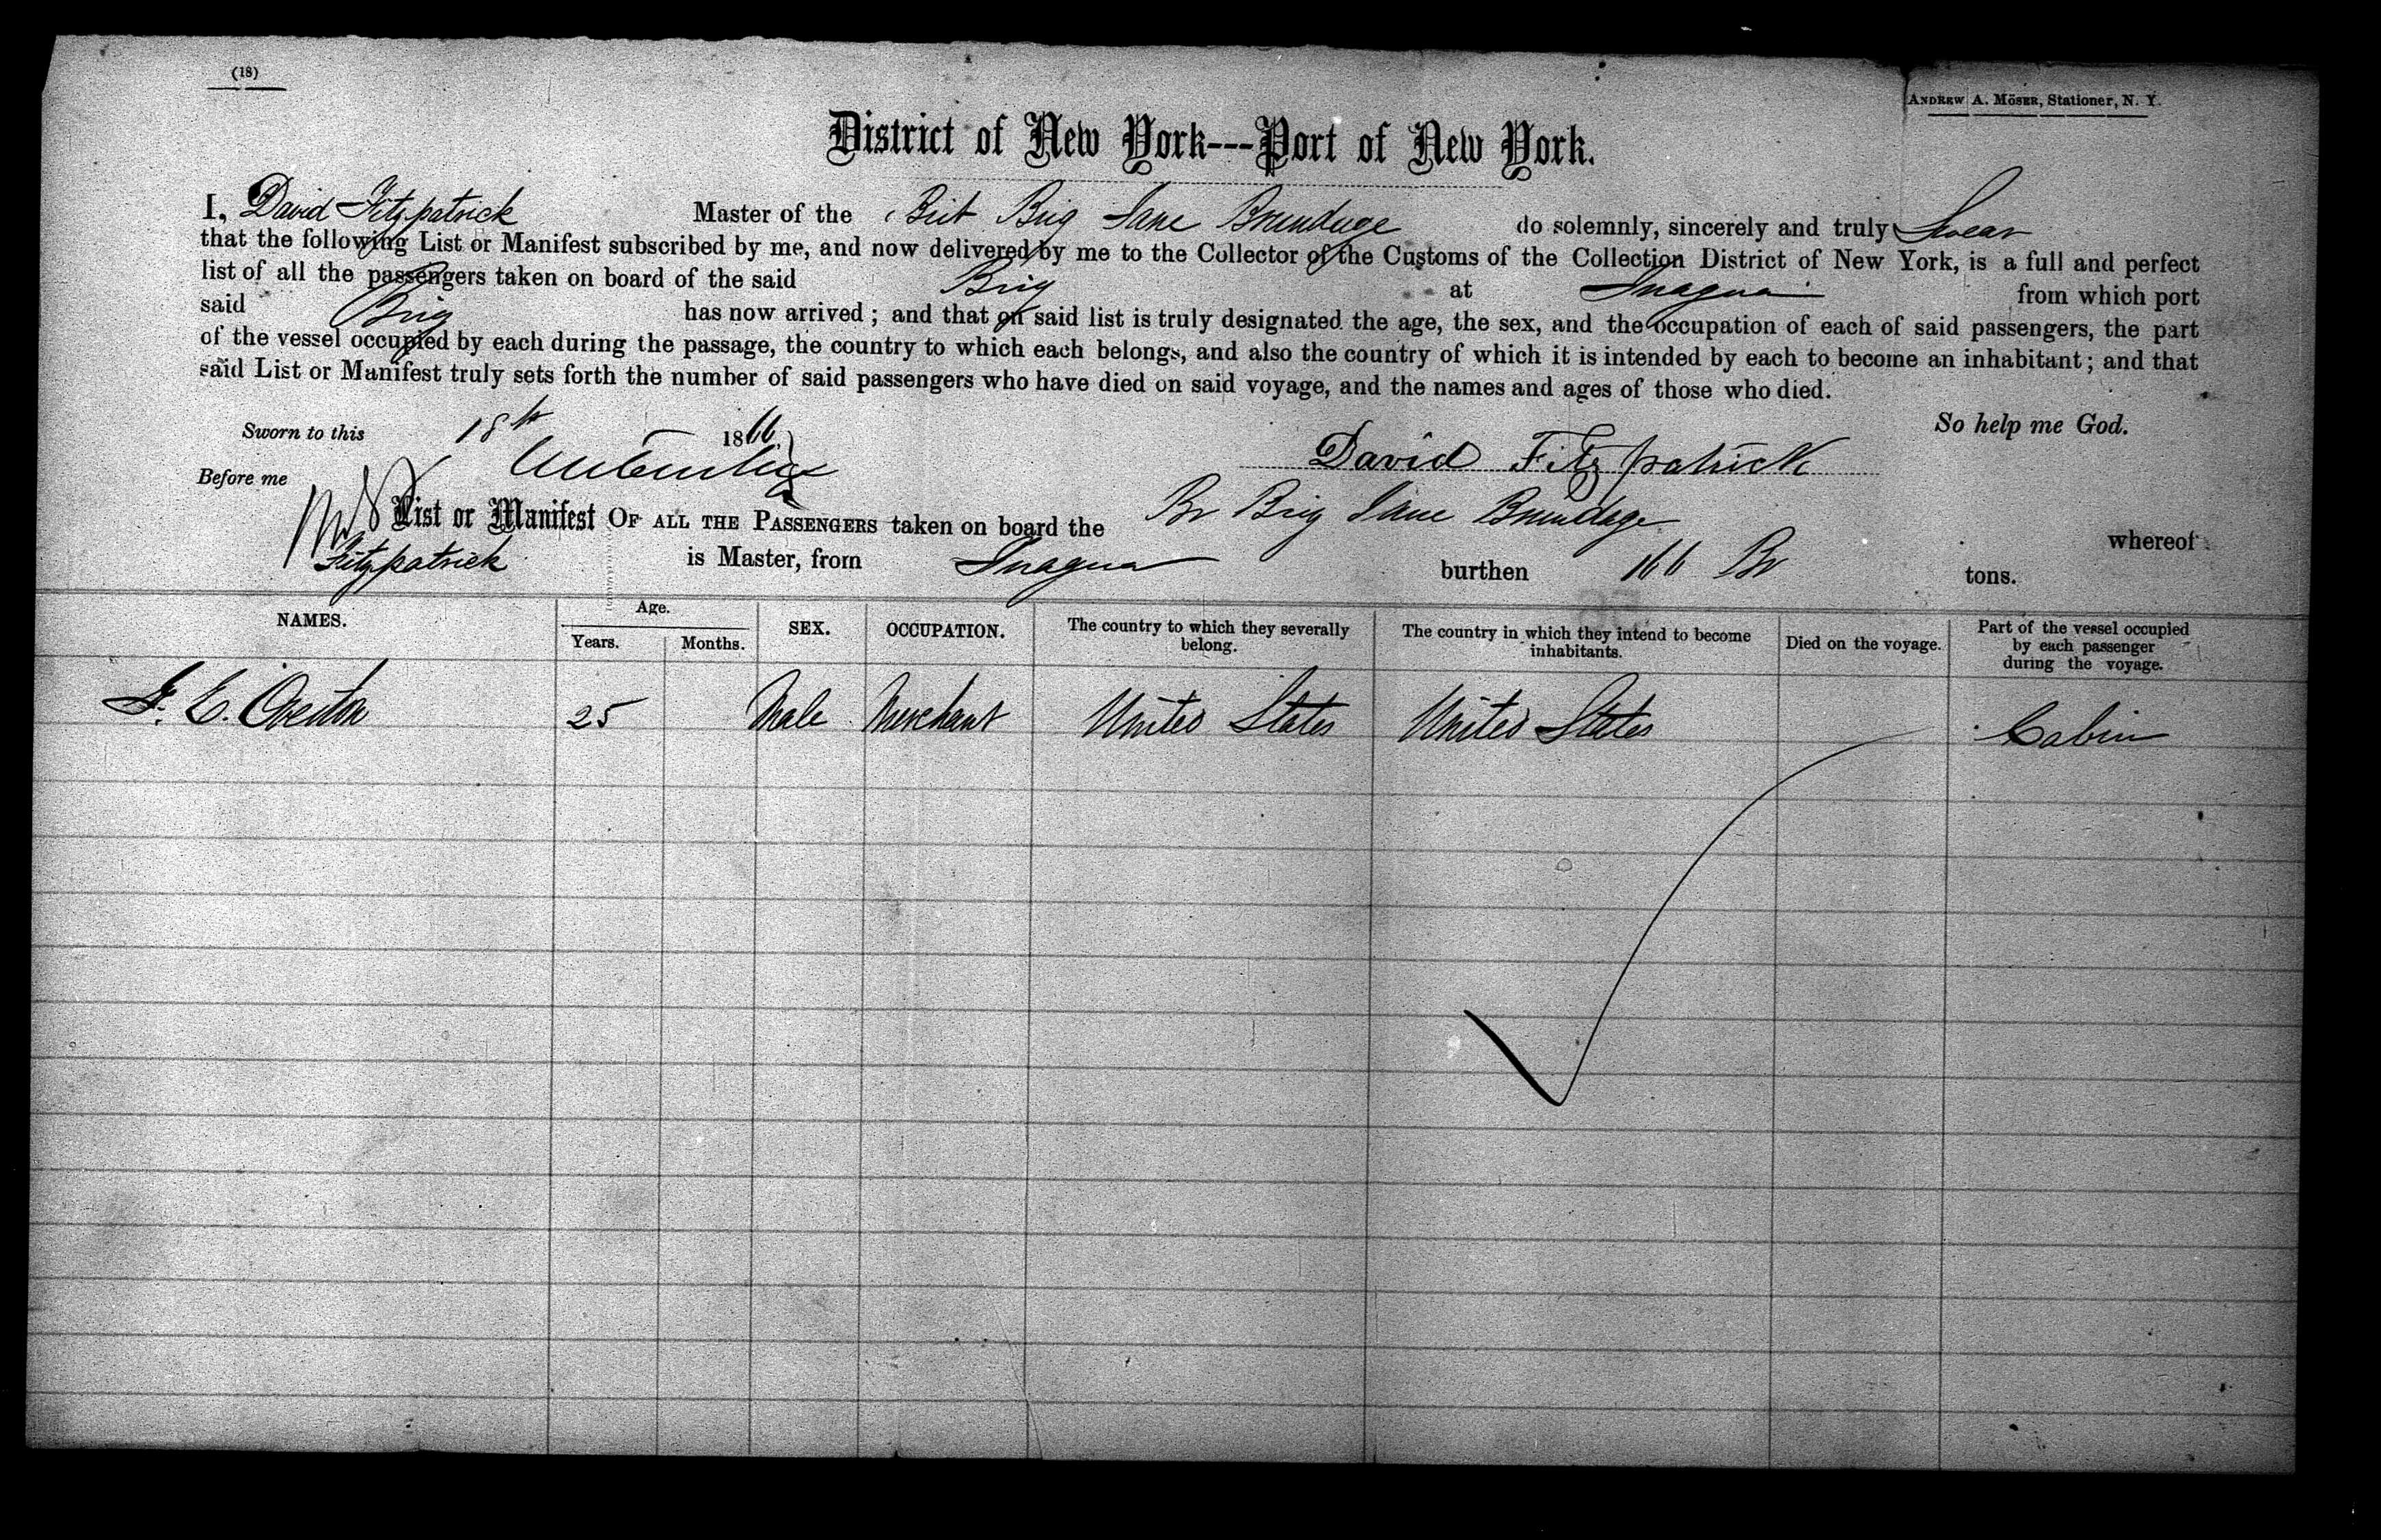 (18)
Andrew A. Möser, Stationer, N. Y.
District of New York---Port of New York.
I, David Fitzpatrick Master of the Brit Brig Jane Brundage do solemnly, sincerely and truly Swear
that the following List or Manifest subscribed by me, and now delivered by me to the Collector of the Customs of the Collection District of New York, is a full and perfect
list of all the passengers taken on board of the said Brig at Inagua from which port
said Brig has now arrived; and that on said list is truly designated the age, the sex, and the occupation of each of said passengers, the part
of the vessel occupied by each during the passage, the country to which each belongs, and also the country of which it is intended by each to become an inhabitant; and that
said List or Manifest truly sets forth the number of said passengers who have died on said voyage, and the names and ages of those who died.
So help me God.
Sworn to this 18th 1866
David Fitzpatrick
Before me
List or Manifest OF ALL THE PASSENGERS taken on board the Br Brig Jane Brundage whereof
Fitzpatrick is Master, from Inagua burthen 166 Br tons.
NAMES. Age. Years. Months. SEX. OCCUPATION. The country to which they severally belong. The country in which they intend to become inhabitants. Died on the voyage. Part of the vessel occupied by each passenger during the voyage.
E. Overton 25 Male Merchant United States United States Cabin